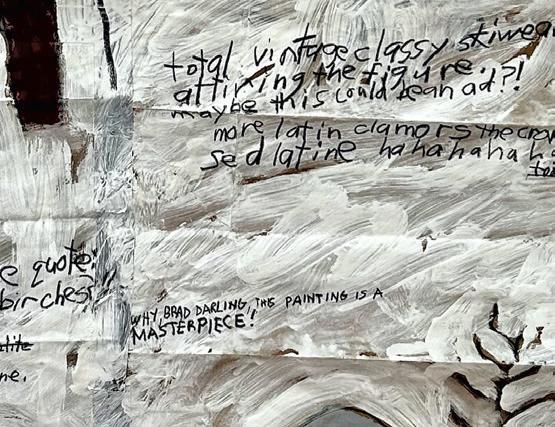 total vintage classy skiwear
attiring the figure.
maybe this could be an ad?!
more latin clamors the crap
sed latine hahahahah
e quote:
birches?
WHY, BRAD DARLING, THIS PAINTING IS A
MASTERPIECE!
ne.